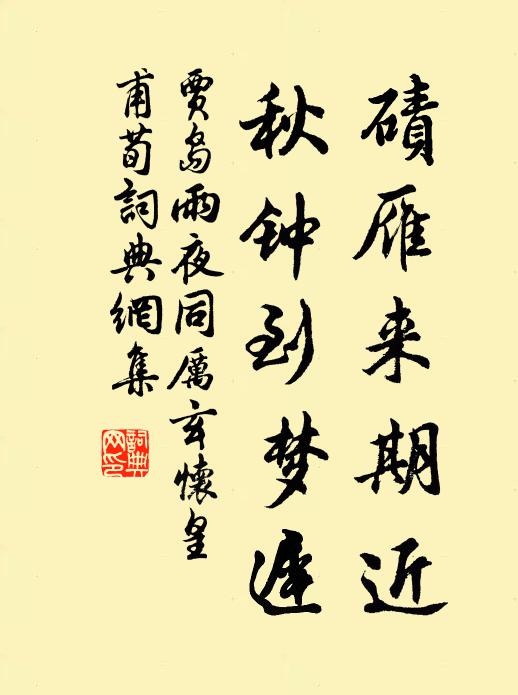 磧雁来期近
秋钟到梦遲
賈島雨夜同厲玄懷皇
甫荀詞典網集
詞典
网印